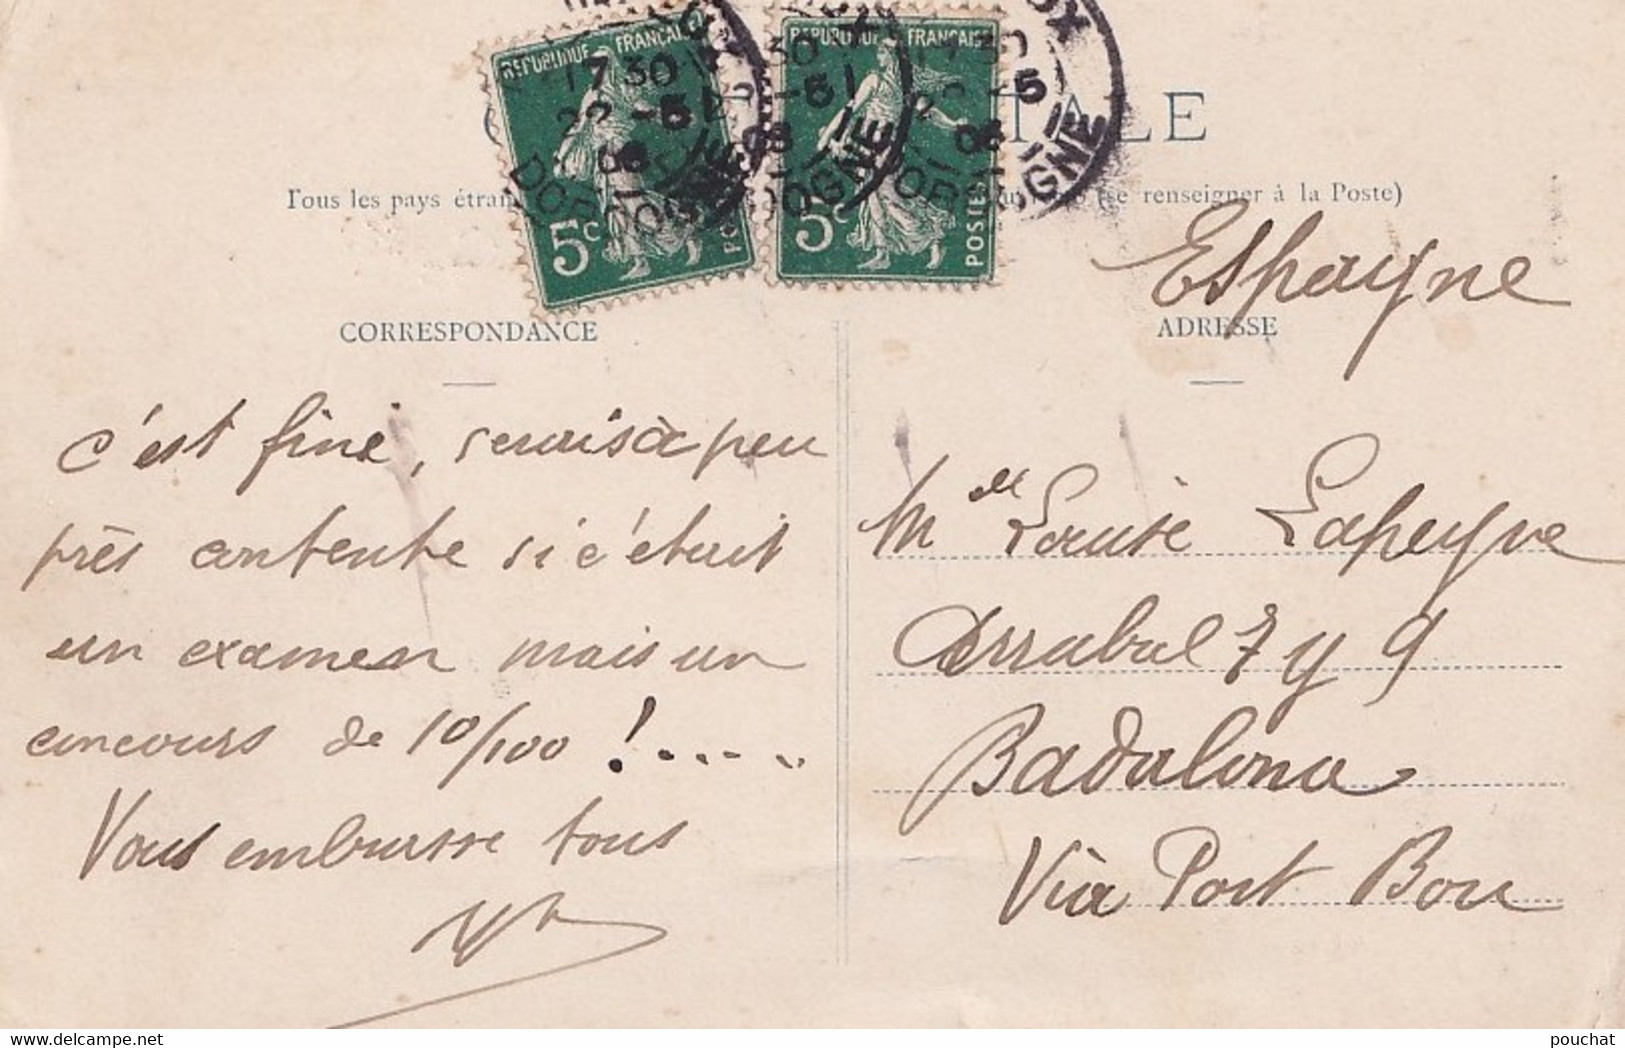 RÉPUBLIQUE FRANÇAISE
5c
POSTES
17 30
22 -5
08
DORDOGNE
RÉPUBLIQUE FRANÇAISE
5c
POSTES
DORDOGNE
ALE
Tous les pays étran
(se renseigner à la Poste)
Espagne
CORRESPONDANCE
ADRESSE
c'est fini, serais à peu
près contente si c'était
un examen mais un
concours de 10/100 !.....
Vous embrasse tous
Mlle Louise Lapeyre
Arrabal 7 y 9
Badalona
Via Port Bou
pouchat